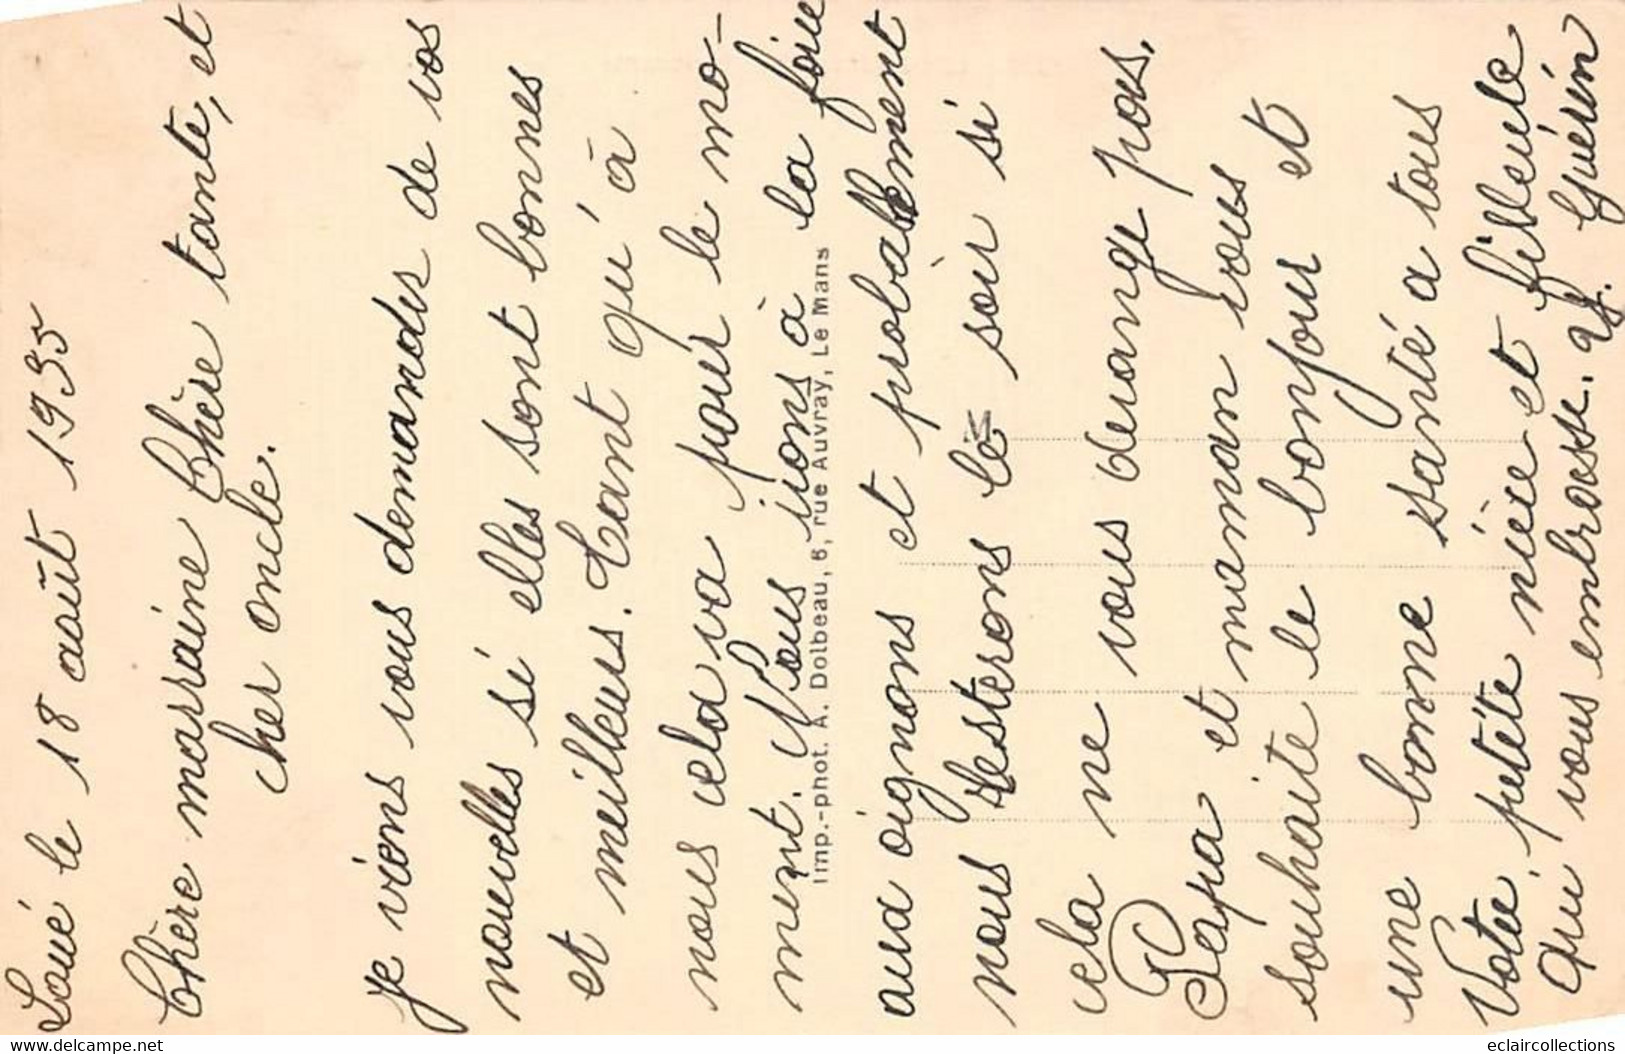 Loué le 18 août 1935
Chère marraine Chère tante, et
cher oncle.
je viens vous demandés de vos
nouvelles si elles sont bonnes
et meilleus. Tant qu'à
nous cela va pour le mo-
ment. Nous irons à la foire
aux oignons et probablement
nous resterons le soir si
cela ne vous derange pas.
Papa et maman vous
souhaite le bonjour et
une bonne santé a tous
Votre petite nièce et filleule
Qui vous embrasse. Guérin
Imp.-phot. A. Dolbeau, 6, rue Auvray, Le Mans
delcampe.net
eclaircollections